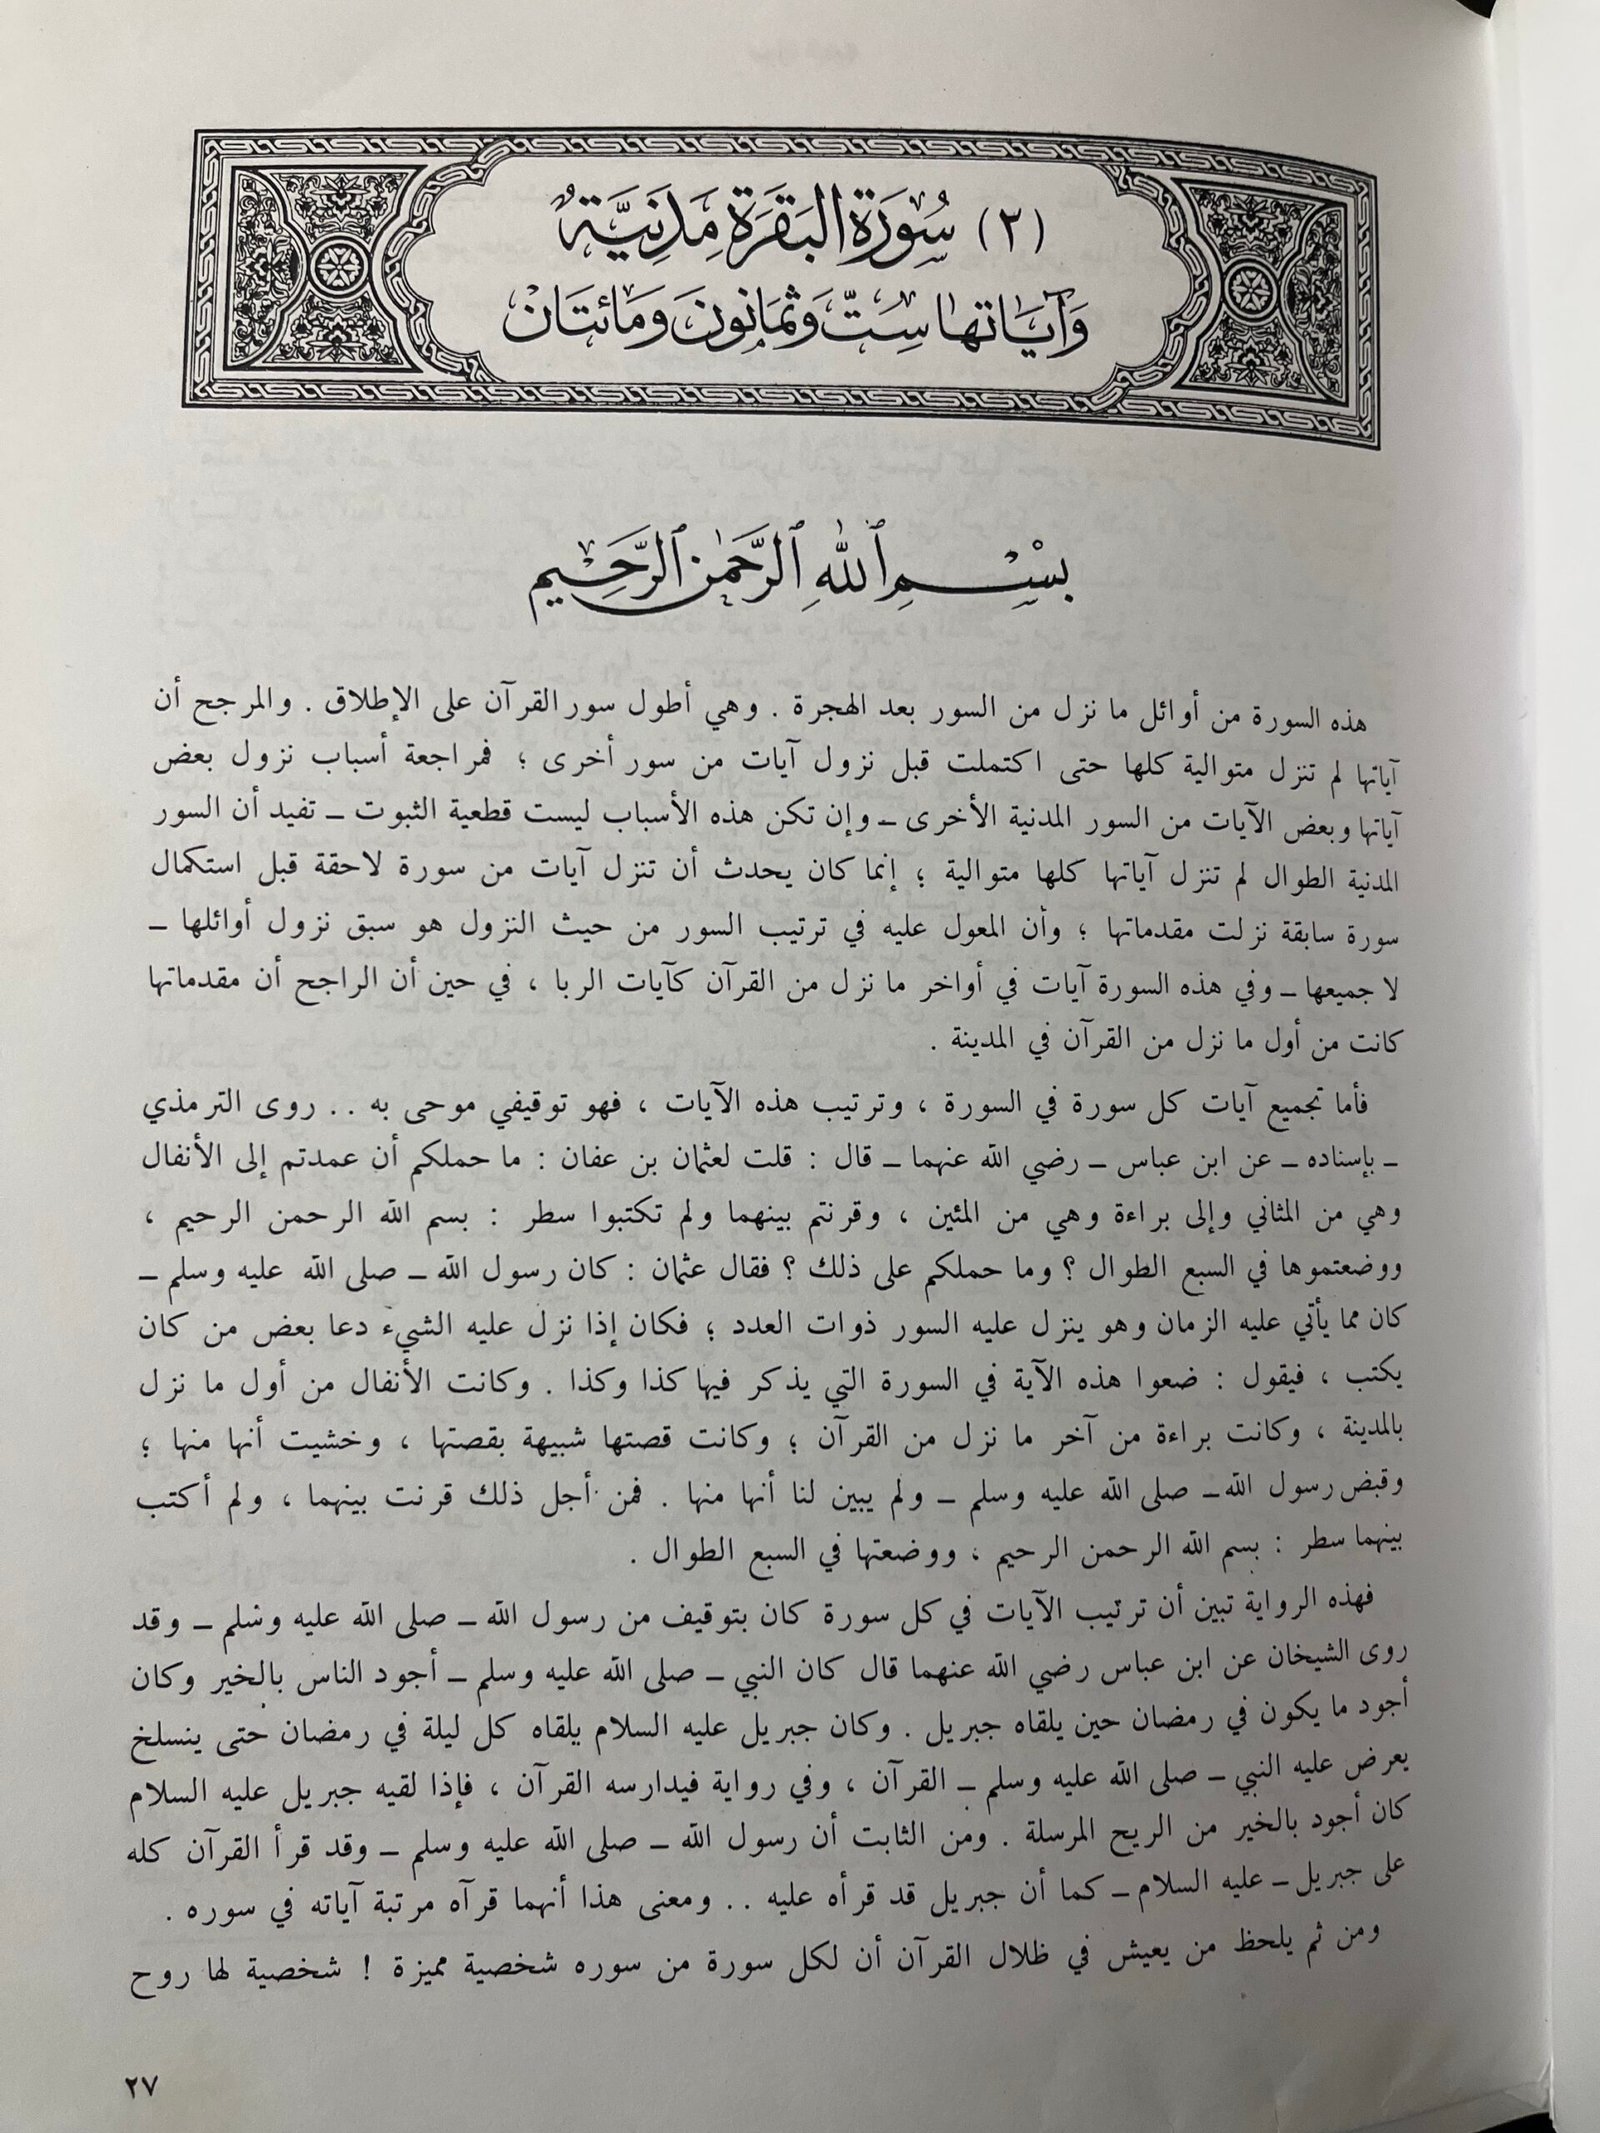 (٢) سُورَةُ البَقَرَةِ مَدَنِيَّةٌ
وَآيَاتُهَا سِتٌّ وَثَمَانُونَ وَمَائَتَانِ
بِسْمِ ٱللَّهِ ٱلرَّحْمَٰنِ ٱلرَّحِيمِ
هذه السورة من أوائل ما نزل من السور بعد الهجرة . وهي أطول سور القرآن على الإطلاق . والمرجح أن
آياتها لم تنزل متوالية كلها حتى اكتملت قبل نزول آيات من سور أخرى ؛ فمراجعة أسباب نزول بعض
آياتها وبعض الآيات من السور المدنية الأخرى – وإن تكن هذه الأسباب ليست قطعية الثبوت – تفيد أن السور
المدنية الطوال لم تنزل آياتها كلها متوالية ؛ إنما كان يحدث أن تنزل آيات من سورة لاحقة قبل استكمال
سورة سابقة نزلت مقدماتها ؛ وأن المعول عليه في ترتيب السور من حيث النزول هو سبق نزول أوائلها –
لا جميعها – وفي هذه السورة آيات في أواخر ما نزل من القرآن كآيات الربا ، في حين أن الراجح أن مقدماتها
كانت من أول ما نزل من القرآن في المدينة .
فأما تجميع آيات كل سورة في السورة ، وترتيب هذه الآيات ، فهو توقيفي موحى به . . روى الترمذي
– بإسناده – عن ابن عباس – رضي الله عنهما – قال : قلت لعثمان بن عفان : ما حملكم أن عمدتم إلى الأنفال
وهي من المثاني وإلى براءة وهي من المئين ، وقرنتم بينهما ولم تكتبوا سطر : بسم الله الرحمن الرحيم ،
ووضعتموها في السبع الطوال ؟ وما حملكم على ذلك ؟ فقال عثمان : كان رسول الله – صلى الله عليه وسلم –
كان مما يأتي عليه الزمان وهو ينزل عليه السور ذوات العدد ؛ فكان إذا نزل عليه الشيء دعا بعض من كان
يكتب ، فيقول : ضعوا هذه الآية في السورة التي يذكر فيها كذا وكذا . وكانت الأنفال من أول ما نزل
بالمدينة ، وكانت براءة من آخر ما نزل من القرآن ؛ وكانت قصتها شبيهة بقصتها ، وخشيت أنها منها ؛
وقبض رسول الله – صلى الله عليه وسلم – ولم يبين لنا أنها منها . فمن أجل ذلك قرنت بينهما ، ولم أكتب
بينهما سطر : بسم الله الرحمن الرحيم ، ووضعتها في السبع الطوال .
فهذه الرواية تبين أن ترتيب الآيات في كل سورة كان بتوقيف من رسول الله – صلى الله عليه وسلم – وقد
روى الشيخان عن ابن عباس رضي الله عنهما قال كان النبي – صلى الله عليه وسلم – أجود الناس بالخير وكان
أجود ما يكون في رمضان حين يلقاه جبريل . وكان جبريل عليه السلام يلقاه كل ليلة في رمضان حتى ينسلخ
يعرض عليه النبي – صلى الله عليه وسلم – القرآن ، وفي رواية فيدارسه القرآن ، فإذا لقيه جبريل عليه السلام
كان أجود بالخير من الريح المرسلة . ومن الثابت أن رسول الله – صلى الله عليه وسلم – وقد قرأ القرآن كله
على جبريل – عليه السلام – كما أن جبريل قد قرأه عليه . . ومعنى هذا أنهما قرآه مرتبة آياته في سوره .
ومن ثم يلحظ من يعيش في ظلال القرآن أن لكل سورة من سوره شخصية مميزة ! شخصية لها روح
٢٧